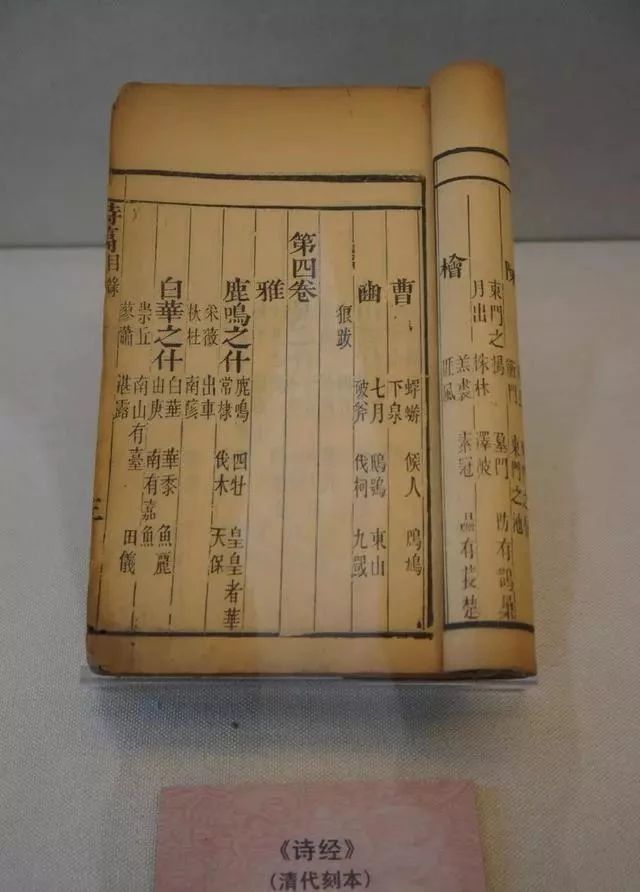 東門之揚 墓門 防有鵲巢
月出 株林 澤陂
檜
羔裘 素冠 隰有萇楚
匪風
曹
蜉蝣 候人 鳲鳩
下泉
豳
七月 鴟鴞 東山
破斧 伐柯 九罭
狼跋
第四卷
雅
鹿鳴之什
鹿鳴 四牡 皇皇者華
常棣 伐木 天保
采薇 出車
杕杜 南陔
白華之什
白華 華黍 魚麗
由庚 南有嘉魚
崇丘 南山有臺 由儀
蓼蕭 湛露
詩篇目錄 三
《诗经》
(清代刻本)